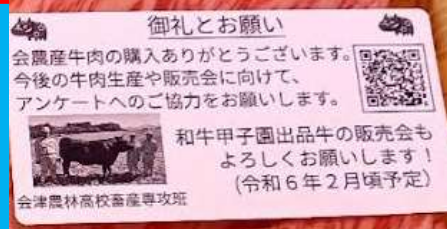 御礼とお願い
会農産牛肉の購入ありがとうございます。
今後の牛肉生産や販売会に向けて、
アンケートへのご協力をお願いします。
和牛甲子園出品牛の販売会も
よろしくお願いします！
（令和６年２月頃予定）
会津農林高校畜産専攻班